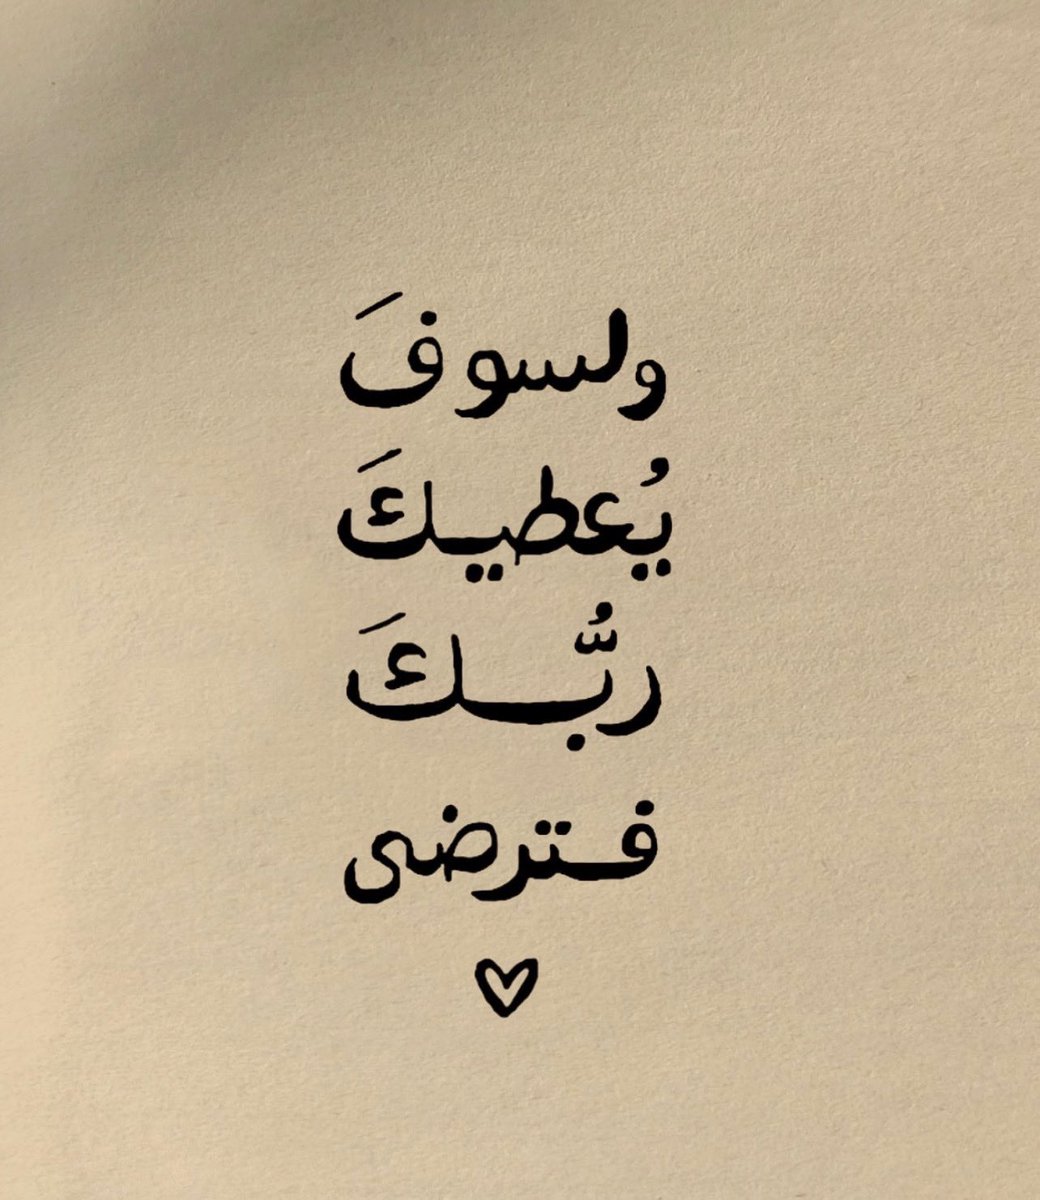 ولسوفَ
يُعطيكَ
ربُّكَ
فترضى